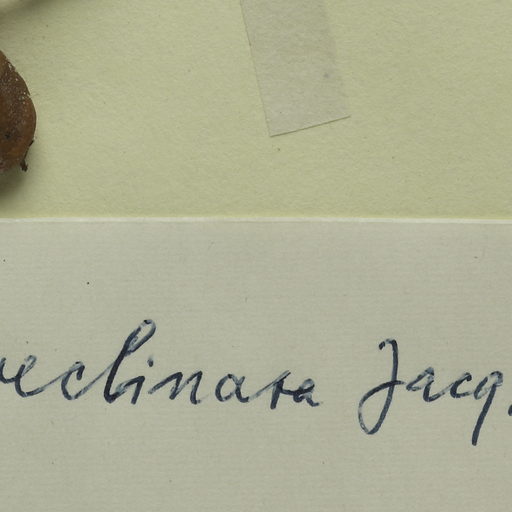 reclinata Jacq.